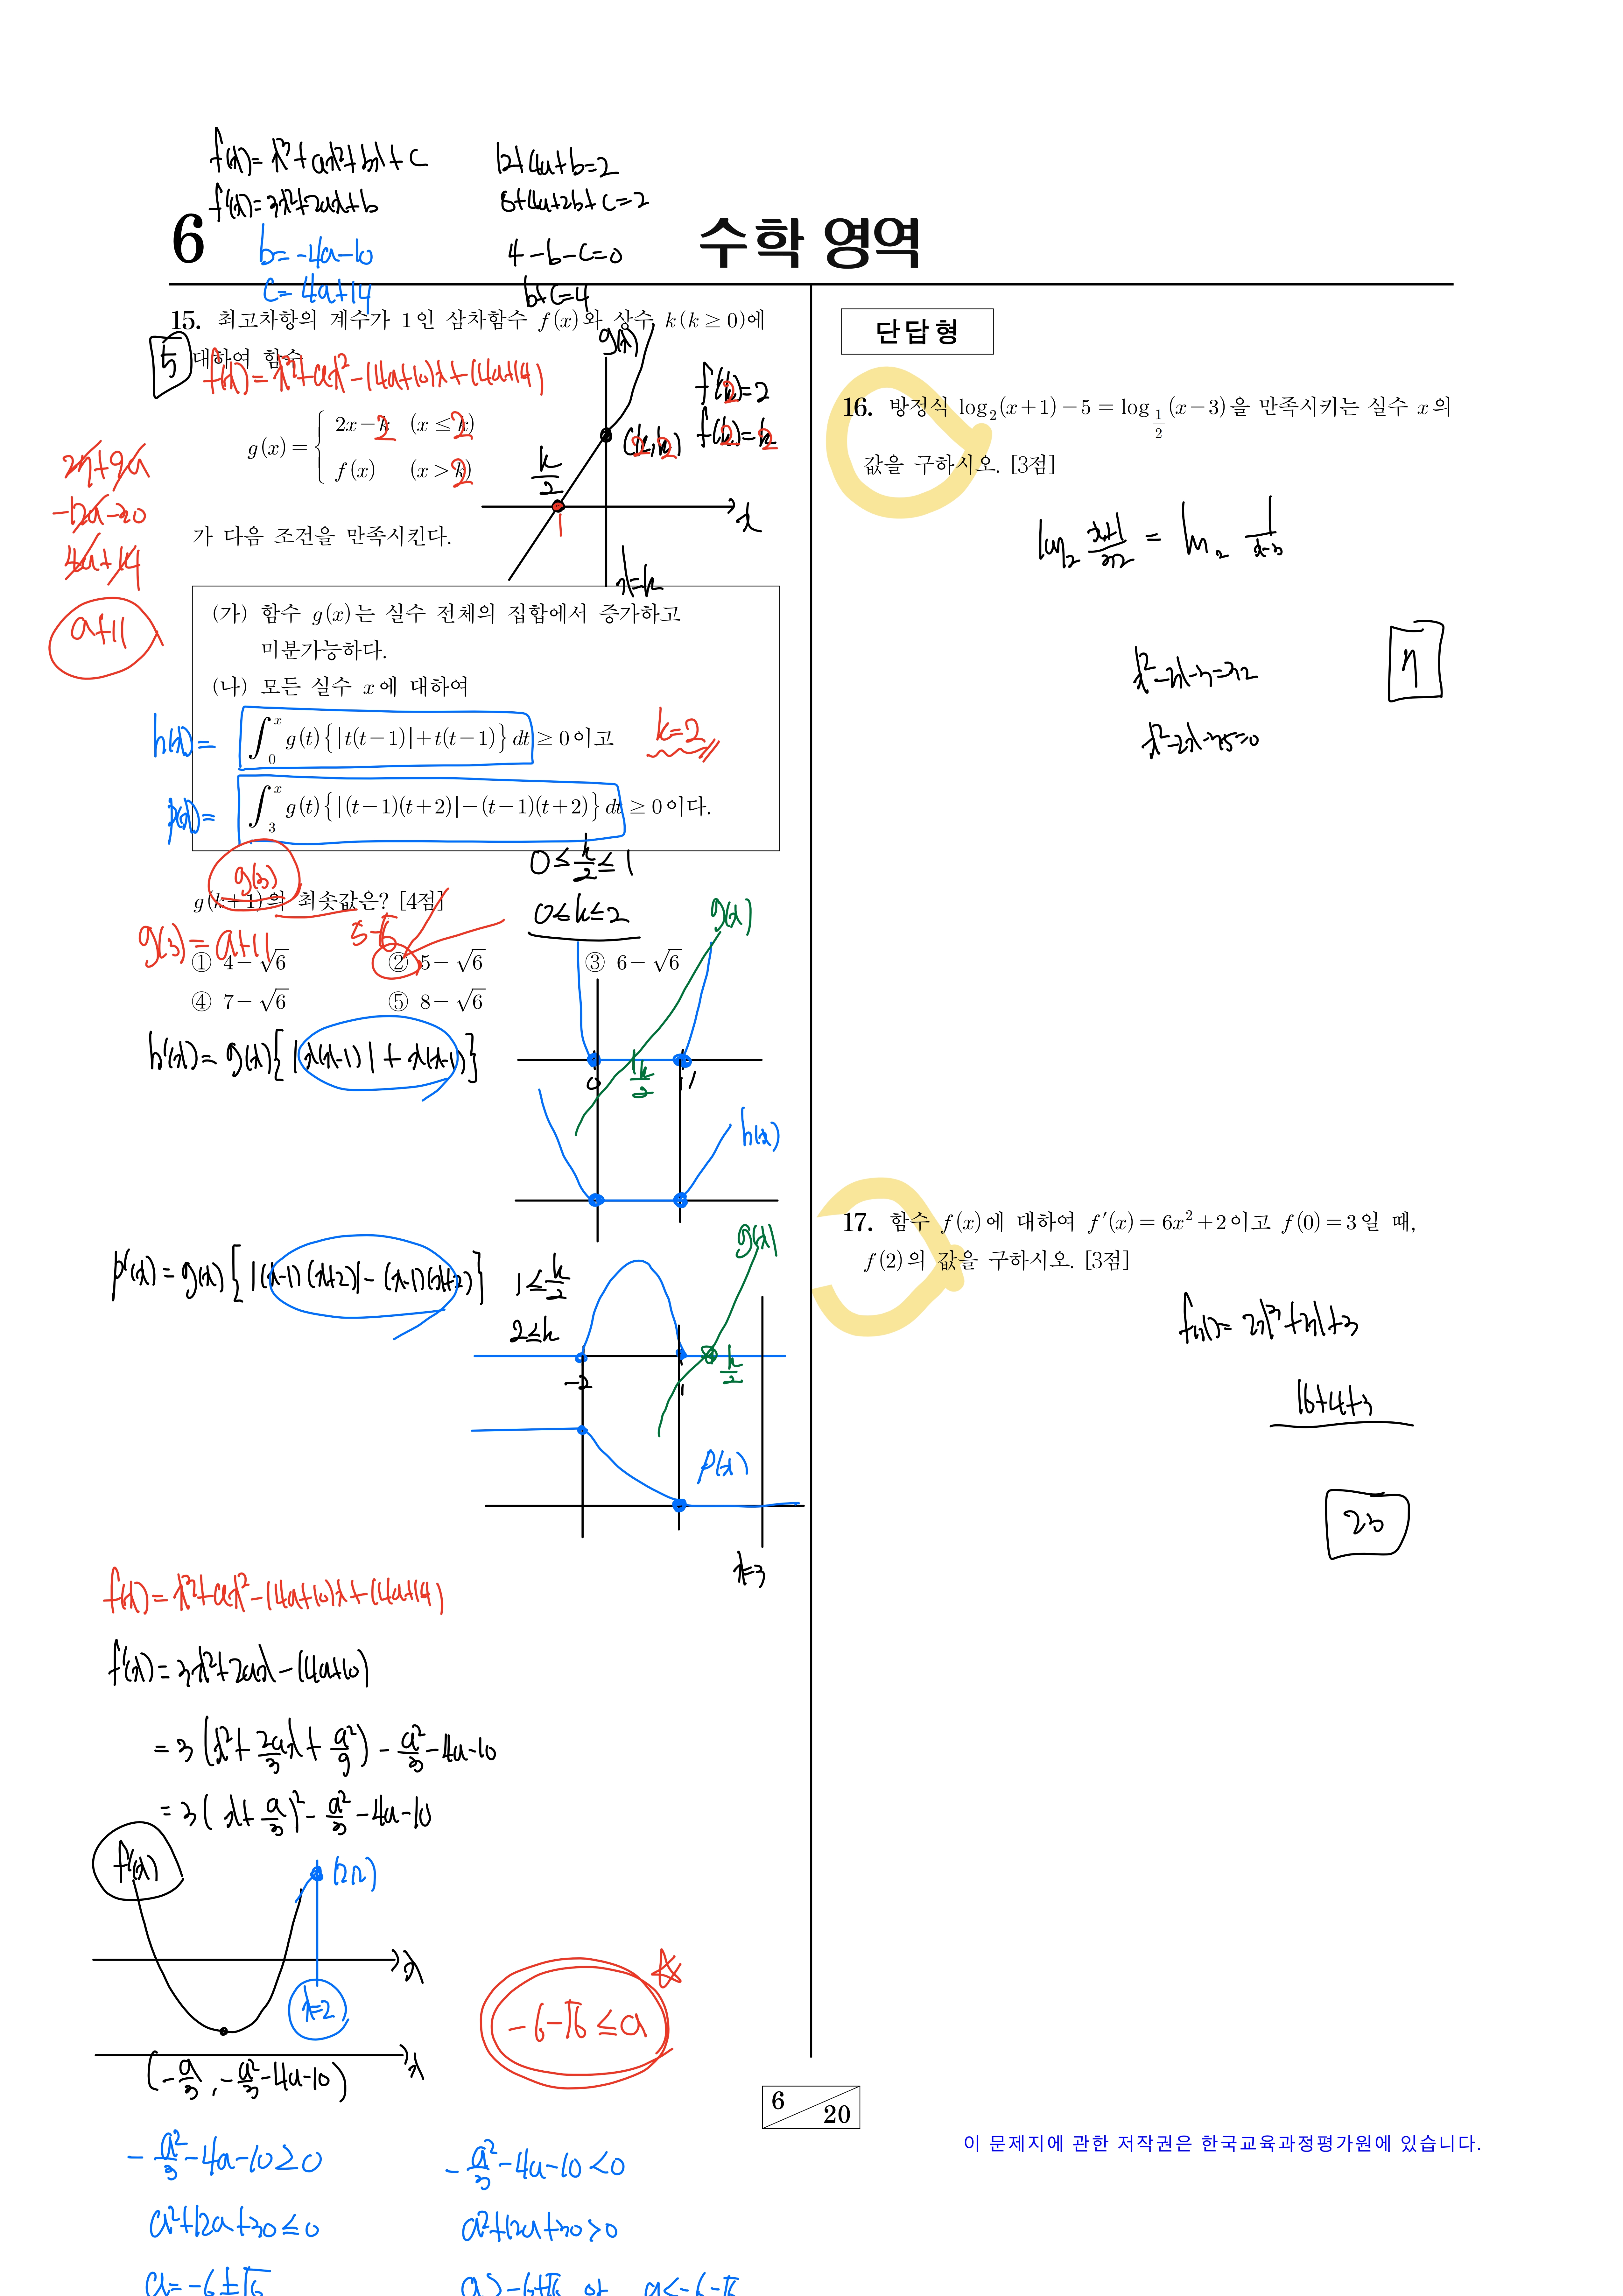 f(x)=x³+ax²+bx+c
12+4a+b=2
f'(x)=3x²+2ax+b
8+4a+2b+c=2
6
수학 영역
b=-4a-10
4-b-c=0
c=4a+14
b+c=4
15. 최고차항의 계수가 1인 삼차함수 f(x)와 상수 k(k≥0)에
5
대하여 함수
f(x)=x³+ax²-(4a+10)x+(4a+14)
g(x)
f'(2)=2
f(2)=2
g(x)= { 2x-k (x≤k)
f(x) (x>k)
(2,2)
k/2
1
x
x=k
27+9a
-12a-30
4a+14
a+11
가 다음 조건을 만족시킨다.
(가) 함수 g(x)는 실수 전체의 집합에서 증가하고
미분가능하다.
(나) 모든 실수 x에 대하여
h(x)= ∫₀ˣ g(t){|t(t-1)|+t(t-1)}dt≥0이고
k=2
p(x)= ∫₃ˣ g(t){|(t-1)(t+2)|-(t-1)(t+2)}dt≥0이다.
0≤k/2≤1
g(3)
g(k+1)의 최솟값은? [4점]
0≤k≤2
g(3)=a+11
5-√6
① 4-√6 ② 5-√6 ③ 6-√6
④ 7-√6 ⑤ 8-√6
g(x)
h'(x)=g(x){|x(x-1)|+x(x-1)}
0 k/2 1
h(x)
p'(x)=g(x){|(x-1)(x+2)|-(x-1)(x+2)}
1≤k/2
2≤k
g(x)
-2 1 k/2
p(x)
x=3
f(x)=x³+ax²-(4a+10)x+(4a+14)
f'(x)=3x²+2ax-(4a+10)
=3(x²+2a/3 x+a²/9)-a²/3-4a-10
=3(x+a/3)²-a²/3-4a-10
f'(x)
(2,2)
x
x=2
-6-√6≤a
x
(-a/3, -a²/3-4a-10)
-a²/3-4a-10≥0
-a²/3-4a-10<0
a²+12a+30≤0
a²+12a+30>0
a=-6±√6
a>-6+√6 or a<-6-√6
단답형
16. 방정식 log₂(x+1)-5=log_{1/2}(x-3)을 만족시키는 실수 x의
값을 구하시오. [3점]
log₂ (x+1)/32 = log₂ 1/(x-3)
x²-2x-3=32
7
x²-2x-35=0
17. 함수 f(x)에 대하여 f'(x)=6x²+2이고 f(0)=3일 때,
f(2)의 값을 구하시오. [3점]
f(x)=2x³+2x+3
16+4+3
23
6
20
이 문제지에 관한 저작권은 한국교육과정평가원에 있습니다.